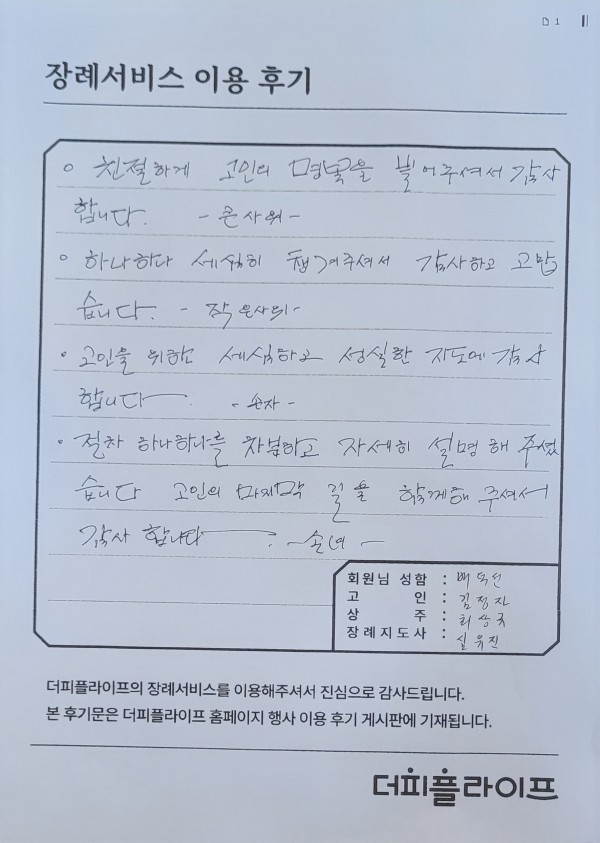 D 1
장례서비스 이용 후기
○ 친절하게 고인의 명복을 빌어주셔서 감사
합니다. - 큰사위 -
○ 하나하나 세심히 챙겨주셔서 감사하고 고맙
습니다. - 작은사위 -
• 고인을 위한 세심하고 성실한 지도에 감사
합니다 - 손자 -
• 절차 하나하나를 차분하고 자세히 설명해 주셨
습니다 고인의 마지막 길을 함께해 주셔서
감사 합니다. - 손녀 -
회원님 성함 : 배덕선
고 인 : 김정자
상 주 : 최상국
장례지도사 : 심유진
더피플라이프의 장례서비스를 이용해주셔서 진심으로 감사드립니다.
본 후기문은 더피플라이프 홈페이지 행사 이용 후기 게시판에 기재됩니다.
더피플라이프